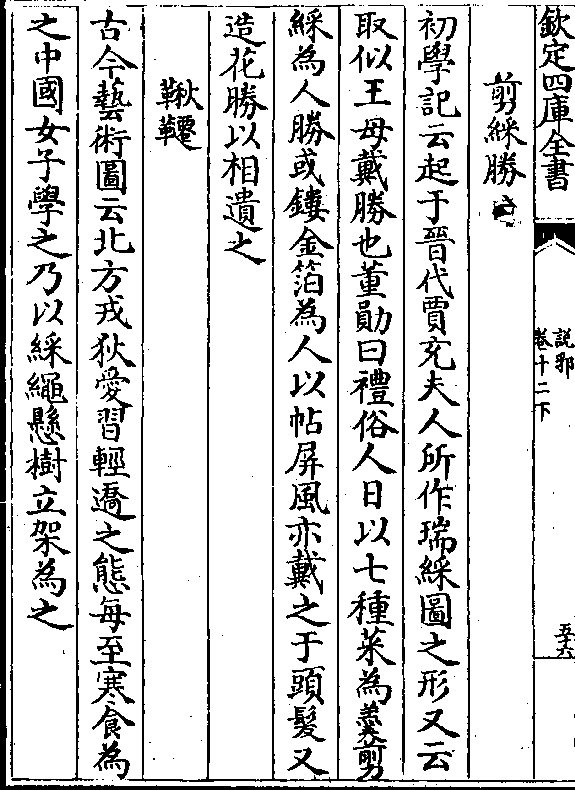 欽定四庫全書
說郛
卷十二下
五十六
剪綵勝
初學記云起于晉代賈充夫人所作瑞綵圖之形又云
取似王母戴勝也董勛曰禮俗人日以七種菜為羹剪
綵為人勝或鏤金箔為人以帖屏風亦戴之于頭髮又
造花勝以相遺之
鞦韆
古今藝術圖云北方戎狄愛習輕趫之態每至寒食為
之中國女子學之乃以綵繩懸樹立架為之